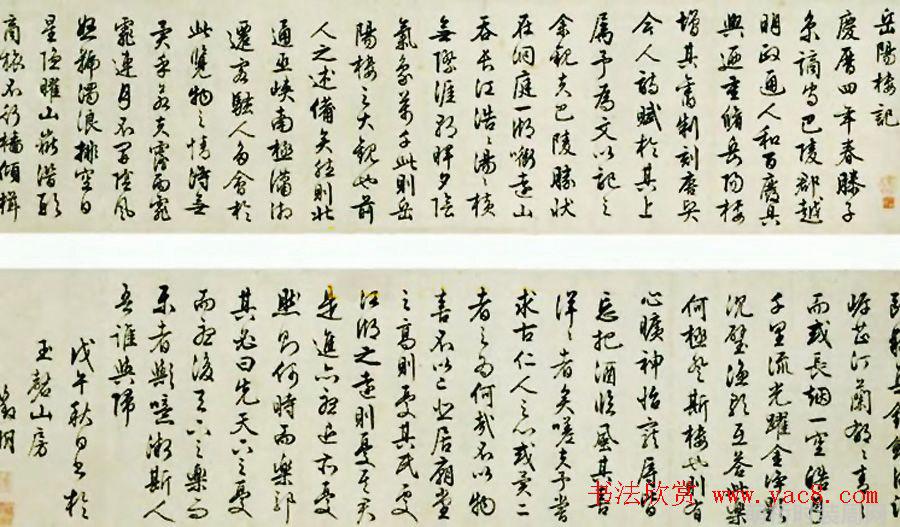 岳陽樓記
慶曆四年春滕子
京謫守巴陵郡越
明政通人和百廢具
興迺重脩岳陽樓
增其舊制刻唐賢
今人詩賦於其上
屬予為文以記之
余觀夫巴陵勝狀
在洞庭一湖銜遠山
吞長江浩浩湯湯橫
無際涯朝暉夕陰
氣象萬千此則岳
陽樓之大觀也前
人之述備矣然則北
通巫峽南極瀟湘
遷客騷人多會於
此覽物之情得無
異乎若夫霪雨霏
霏連月不開陰風
怒號濁浪排空日
星隱曜山嶽潛形
商旅不行檣傾楫
岸芷汀蘭郁郁青青
而或長烟一空皓月
千里流光躍金靜影
沉璧漁歌互答此樂
何極登斯樓也則有
心曠神怡寵辱皆
忘把酒臨風其喜
洋洋者矣嗟夫予嘗
求古仁人之心或異二
者之為何哉不以物
喜不以己悲居廟堂
之高則憂其民處
江湖之遠則憂其君
是進亦憂退亦憂
然則何時而樂耶
其必曰先天下之憂
而憂後天下之樂而
樂者歟噫微斯人
吾誰與歸
戊午秋日書於
玉磬山房
徵明
书法欣赏 www.yac8.com